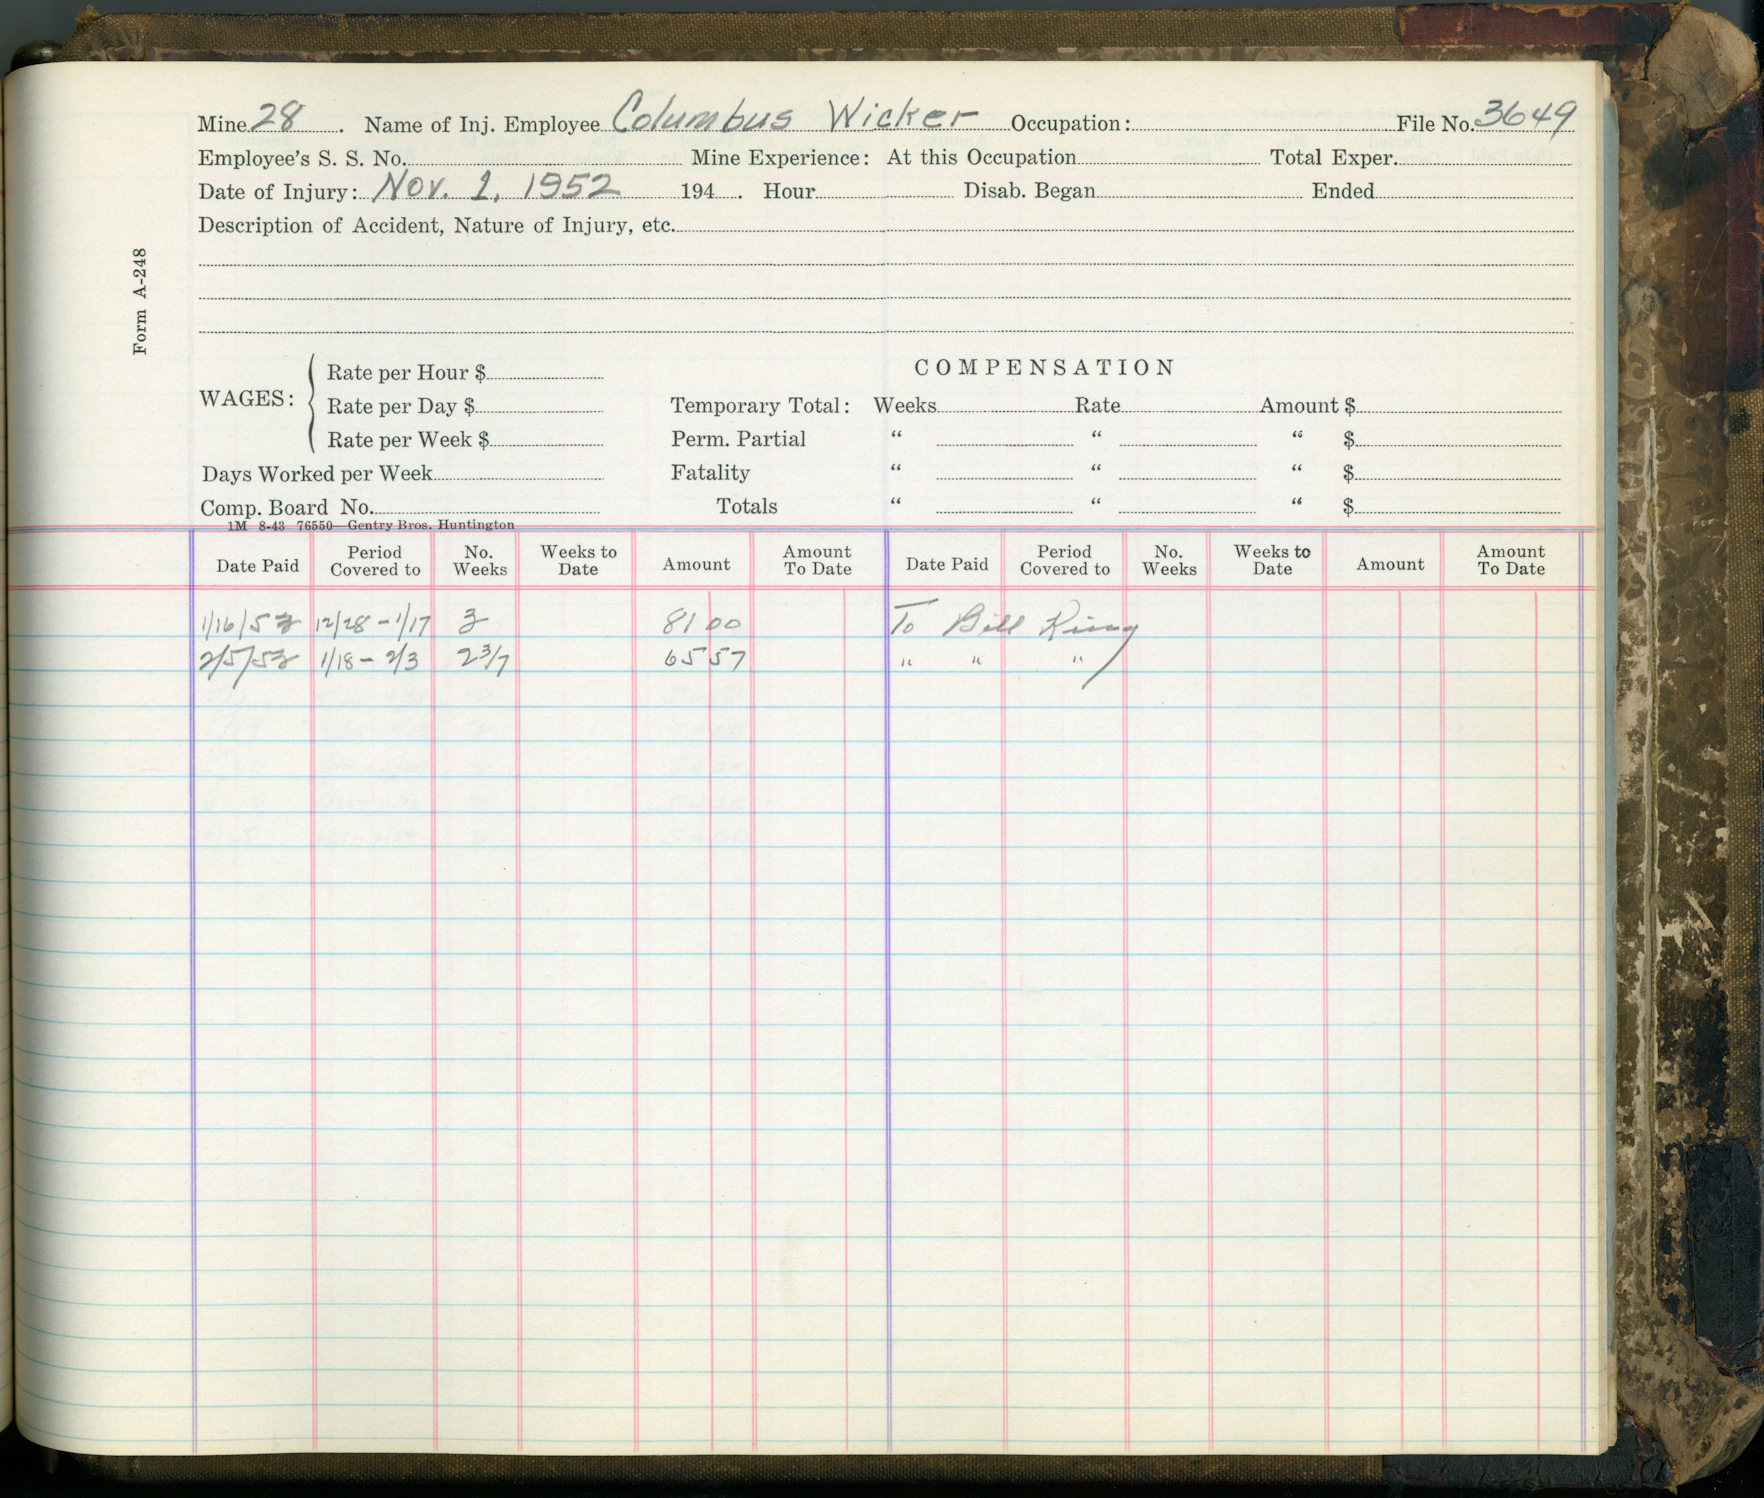 Mine 28. Name of Inj. Employee Columbus Wicker Occupation: File No. 3649
Employee's S. S. No. Mine Experience: At this Occupation Total Exper.
Date of Injury: Nov. 1, 1952 194 . Hour Disab. Began Ended
Description of Accident, Nature of Injury, etc.
Form A-248
COMPENSATION
WAGES:
Rate per Hour $
Rate per Day $ Temporary Total: Weeks Rate Amount $
Rate per Week $ Perm. Partial " " " $
Days Worked per Week Fatality " " " $
Comp. Board No. Totals " " " $
1M 8-43 76550—Gentry Bros. Huntington
Date Paid Period Covered to No. Weeks Weeks to Date Amount Amount To Date Date Paid Period Covered to No. Weeks Weeks to Date Amount Amount To Date
1/16/53 12/28 - 1/17 3 81 00 To Bill King
2/5/53 1/18 - 2/3 2 3/7 65 57 " " "